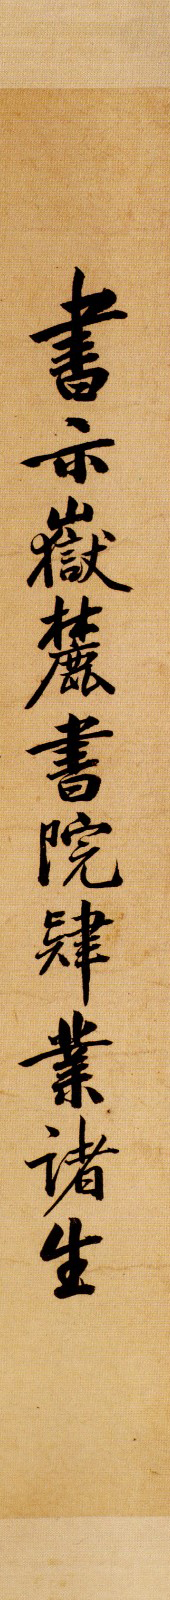 書示嶽麓書院肄業諸生